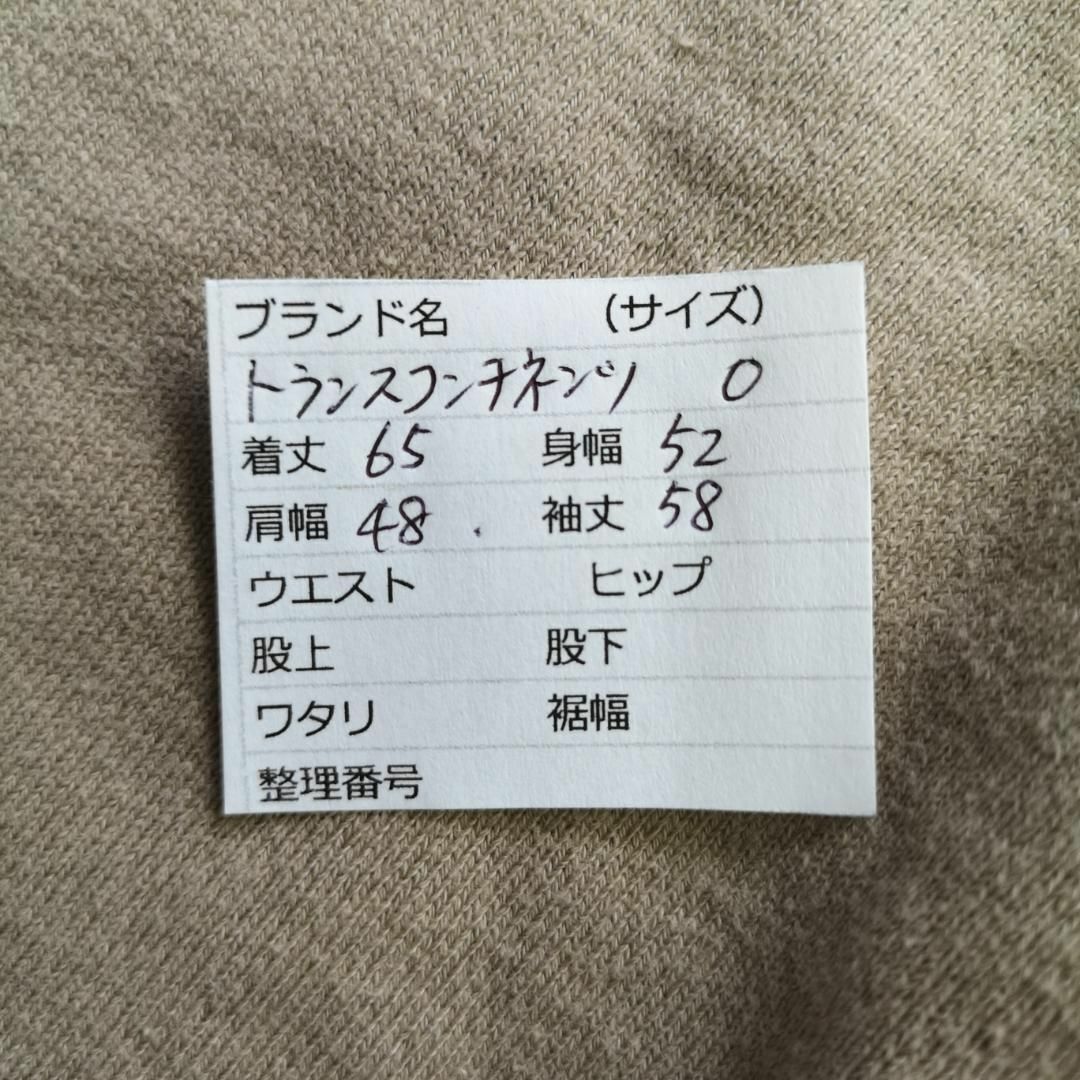 ブランド名 (サイズ)
トランスコンチネンツ 0
着丈 65 身幅 52
肩幅 48 . 袖丈 58
ウエスト ヒップ
股上 股下
ワタリ 裾幅
整理番号